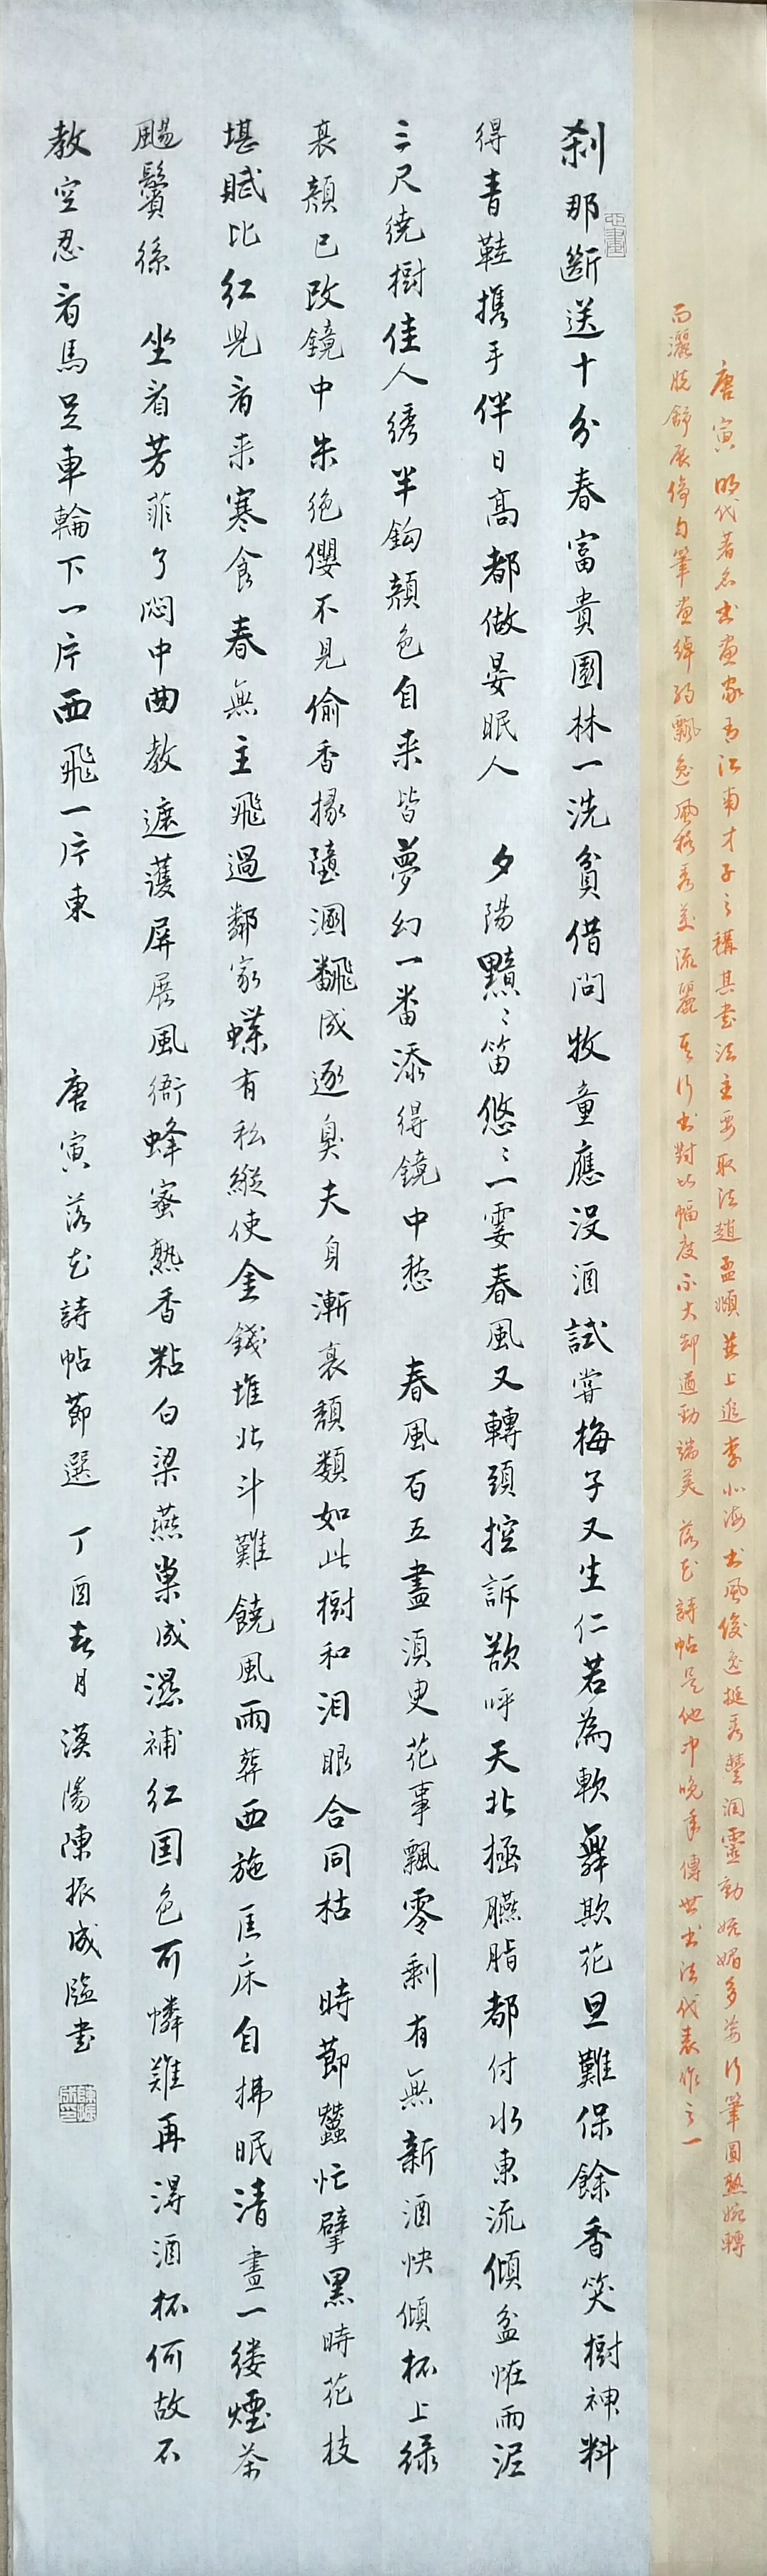 唐寅明代著名书画家有江南才子之稱其书法主要取法趙孟頫並上追李北海书風俊逸挺秀豐润靈動妩媚多姿行筆圓熟婉轉
而灑脱舒展結勾筆画绰约飄逸風格秀美流麗行书對比幅度不大却遒勁端美落花詩帖是他中晚年傳世书法代表作之一
刹那斷送十分春富貴園林一洗貧借问牧童應没酒試嘗梅子又生仁若為軟舞欺花旦難保餘香笑樹神料
得青鞋携手伴日高都做晏眠人 夕陽黯〻笛悠〻一霎春風又轉頭控訴欲呼天北極臙脂都付水東流傾盆怪雨泥
三尺繞樹佳人绣半鈎顏色自来皆夢幻一番添得鏡中愁 春風百五盡須臾花事飄零剩有無新酒快傾杯上绿
衰顏已改鏡中朱绝纓不見偷香掾墮溷翻成逐臭夫身漸衰頹類如此樹和泪眼合同枯 時節蠶忙擘黑時花枝
堪賦比红兒看来寒食春無主飛過鄰家蝶有私縱使金錢堆北斗難饒風雨葬西施匡床自拂眠清晝一缕煙茶
颺鬢絲 坐看芳菲了悶中曲教遮護屏展風衙蜂蜜熟香粘白梁燕巢成濕補红国色可憐難再得酒杯何故不
教空忍看馬足車輪下一片西飛一片東 唐寅落花詩帖節選 丁酉春月漢陽陳振成临书